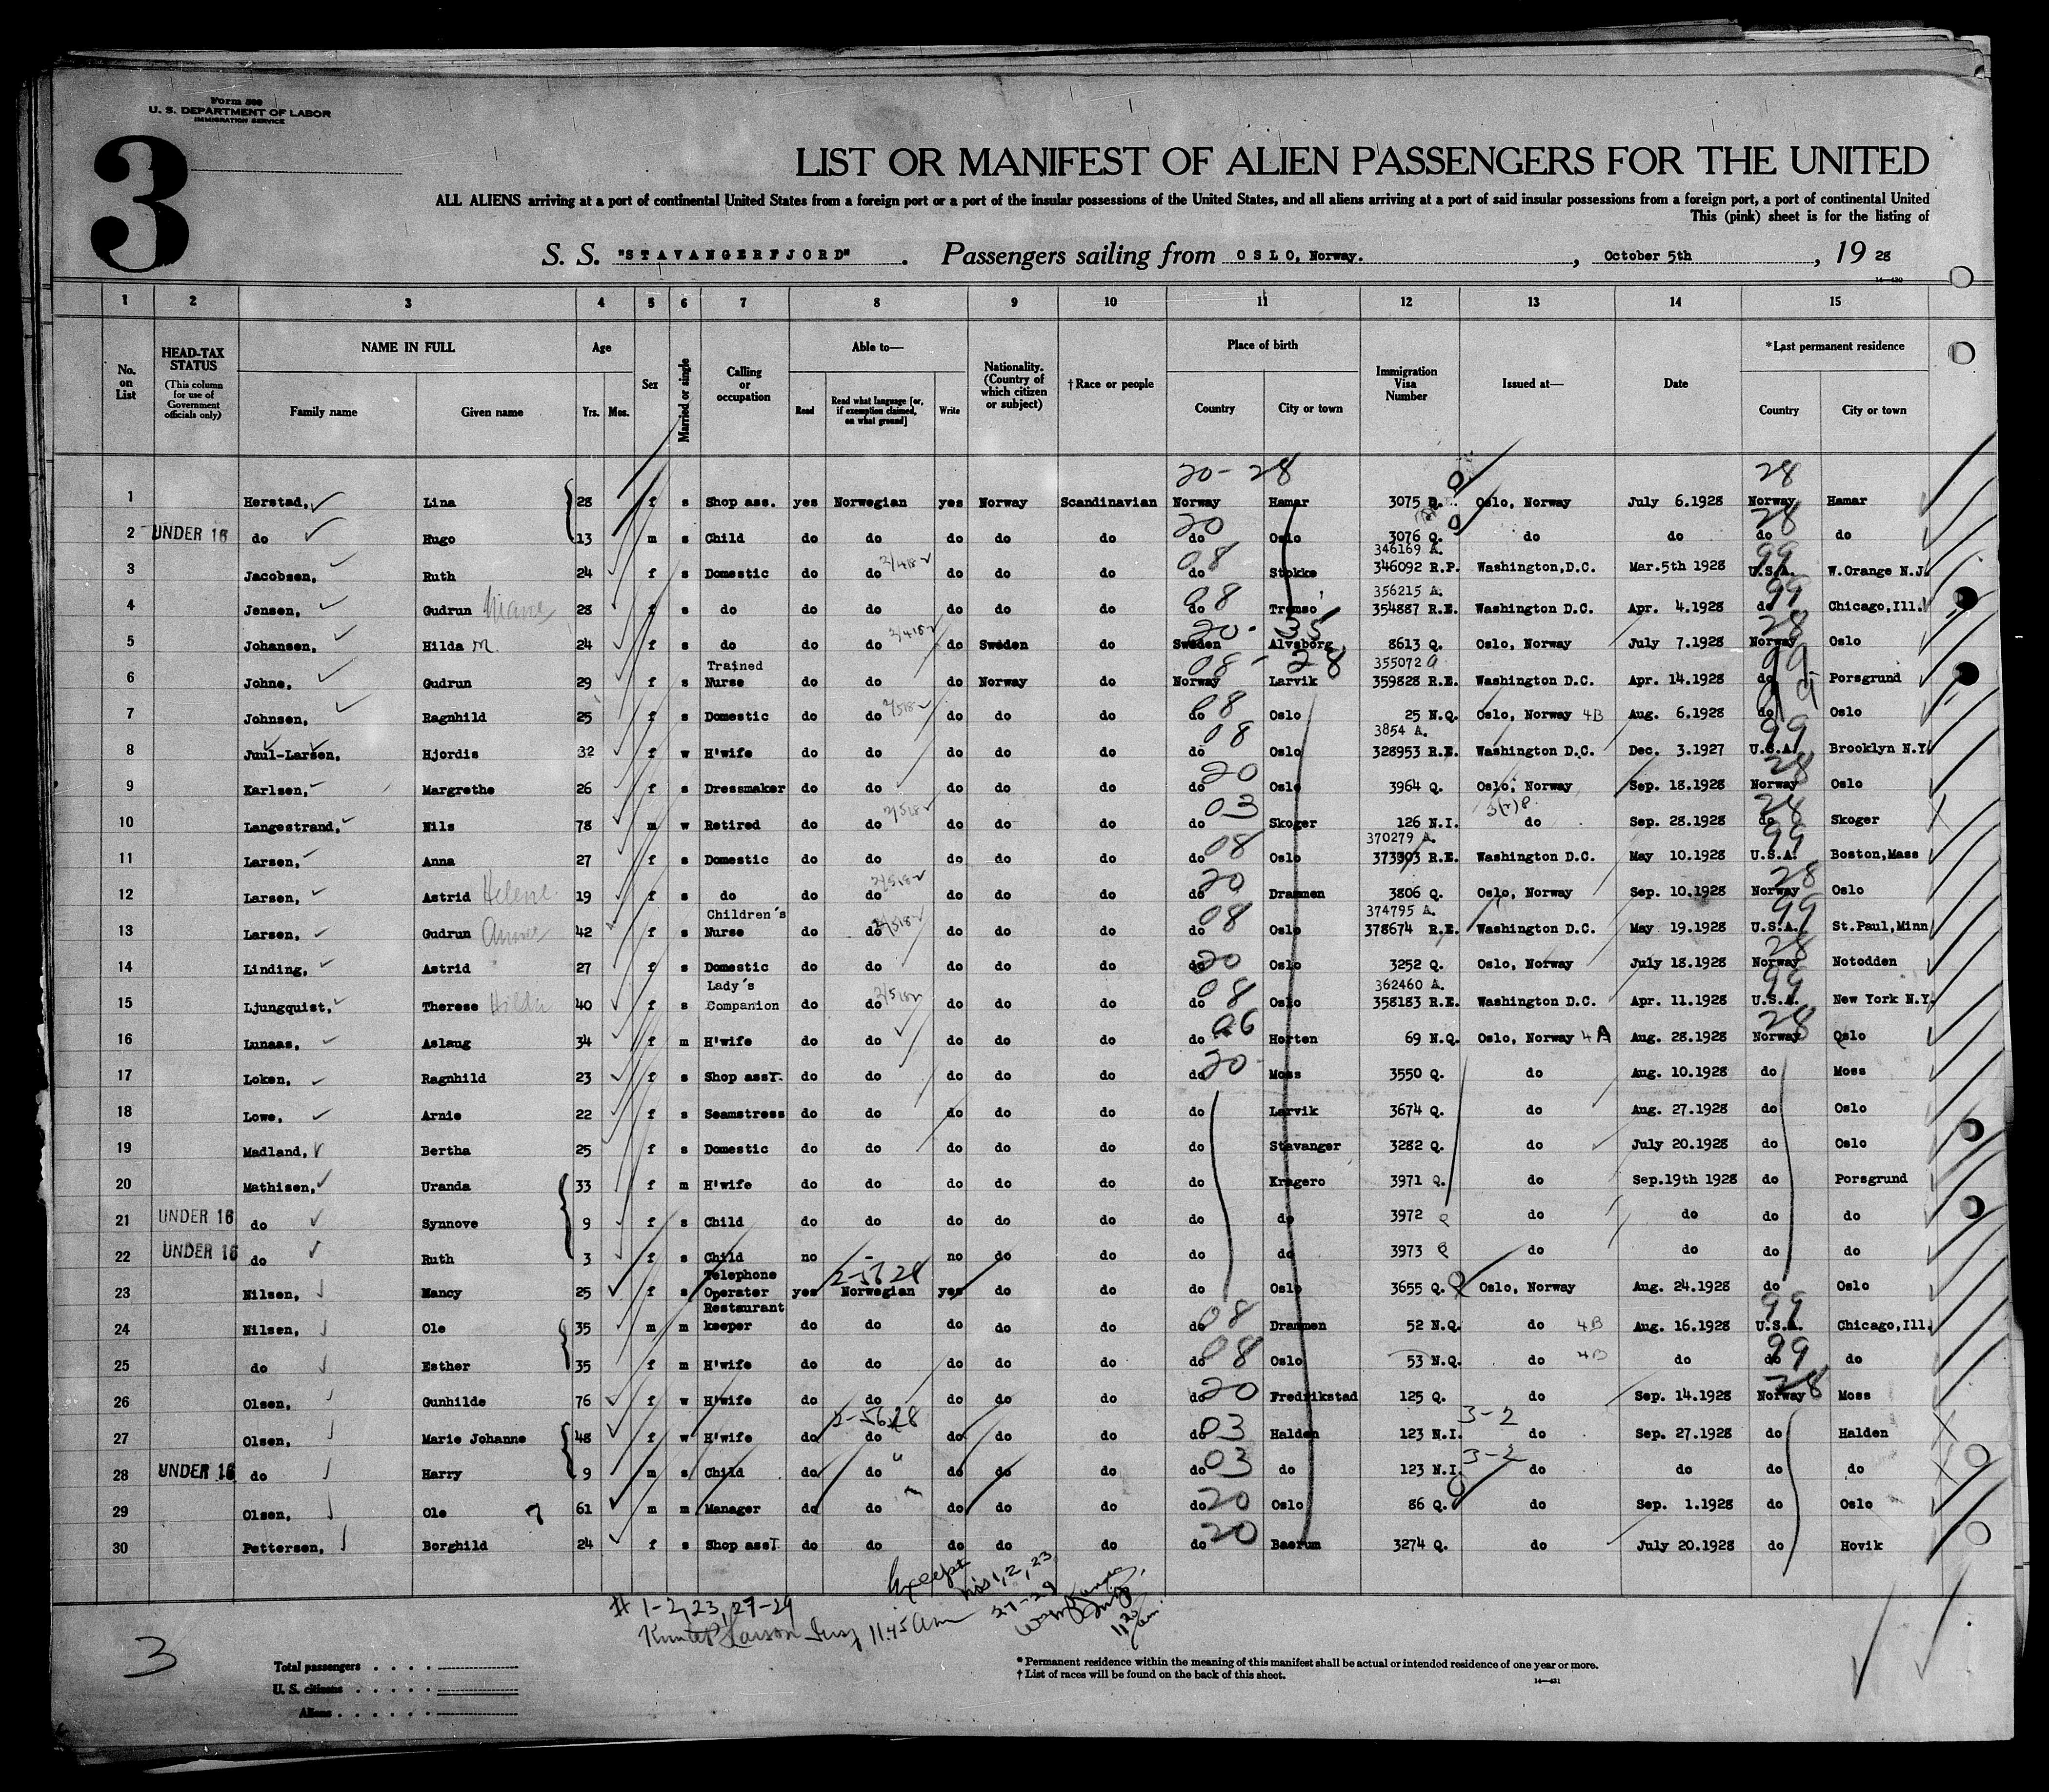 Form 500
U. S. DEPARTMENT OF LABOR
IMMIGRATION SERVICE
3
LIST OR MANIFEST OF ALIEN PASSENGERS FOR THE UNITED
ALL ALIENS arriving at a port of continental United States from a foreign port or a port of the insular possessions of the United States, and all aliens arriving at a port of said insular possessions from a foreign port, a port of continental United
This (pink) sheet is for the listing of
S. S. "STAVANGERFJORD". Passengers sailing from OSLO, Norway., October 5th, 19 28
14—430
1 2 3 4 5 6 7 8 9 10 11 12 13 14 15
No. on List
HEAD-TAX STATUS (This column for use of Government officials only)
NAME IN FULL Family name Given name
Age Yrs. Mos.
Sex
Married or single
Calling or occupation
Able to— Read Read what language [or, if exemption claimed, on what ground] Write
Nationality. (Country of which citizen or subject)
† Race or people
Place of birth Country City or town
Immigration Visa Number
Issued at—
Date
*Last permanent residence Country City or town
20 - 28 28
1 Herstad, Lina 28 f s Shop ass. yes Norwegian yes Norway Scandinavian Norway Hamar 3075 Q. Oslo, Norway July 6.1928 Norway Hamar
20 28
2 UNDER 16 do Hugo 13 m s Child do do do do do do Oslo 3076 Q. do do do do
08 346169 A. 99
3 Jacobsen, Ruth 24 f s Domestic do do do do do do Stokke 346092 R.P. Washington,D.C. Mar.5th 1928 U.S.A. W.Orange N.J.
08 356215 A. 99
4 Jensen, Gudrun 28 f s do do do do do do do Tromso 354887 R.E. Washington D.C. Apr. 4.1928 do Chicago,Ill.
20 - 35 28
5 Johansen, Hilda M. 24 f s do do do do Sweden do Sweden Alvsborg 8613 Q. Oslo, Norway July 7.1928 Norway Oslo
Trained 08 - 28 355072 A 99
6 Johne, Gudrun 29 f s Nurse do do do Norway do Norway Larvik 359828 R.E. Washington D.C. Apr. 14.1928 do Porsgrund
08
7 Johnsen, Ragnhild 25 f s Domestic do do do do do do Oslo 25 N.Q. Oslo, Norway 4B Aug. 6.1928 do Oslo
08 3854 A. 99
8 Juul-Larsen, Hjordis 32 f w H'wife do do do do do do Oslo 328953 R.E. Washington D.C. Dec. 3.1927 U.S.A. Brooklyn N.Y.
20 28
9 Karlsen, Margrethe 26 f s Dressmaker do do do do do do Oslo 3964 Q. Oslo, Norway Sep. 18.1928 Norway Oslo
03 28
10 Langestrand, Nils 78 m w Retired do do do do do do Skoger 126 N.I. do Sep. 28.1928 do Skoger
08 370279 A. 99
11 Larsen, Anna 27 f s Domestic do do do do do do Oslo 373303 R.E. Washington D.C. May 10.1928 U.S.A. Boston,Mass
20 28
12 Larsen, Astrid Helene 19 f s do do do do do do do Drammen 3806 Q. Oslo, Norway Sep. 10.1928 Norway Oslo
Children's 08 374795 A. 99
13 Larsen, Gudrun 42 f s Nurse do do do do do do Oslo 378674 R.E. Washington D.C. May 19.1928 U.S.A. St.Paul,Minn
20 28
14 Linding, Astrid 27 f s Domestic do do do do do do Oslo 3252 Q. Oslo, Norway July 18.1928 Norway Notodden
Lady's 08 362460 A. 99
15 Ljungquist, Therese Hilda 40 f s Companion do do do do do do Oslo 358183 R.E. Washington D.C. Apr. 11.1928 U.S.A. New York N.Y.
06 28
16 Lunaas, Aslaug 34 f m H'wife do do do do do do Horten 69 N.Q. Oslo, Norway 4A Aug. 28.1928 Norway Oslo
20
17 Loken, Ragnhild 23 f s Shop assT. do do do do do do Moss 3550 Q. do Aug. 10.1928 do Moss
18 Lowe, Arnie 22 f s Seamstress do do do do do do Larvik 3674 Q. do Aug. 27.1928 do Oslo
19 Madland, Bertha 25 f s Domestic do do do do do do Stavanger 3282 Q. do July 20.1928 do Oslo
20 Mathisen, Uranda 33 f m H'wife do do do do do do Kragero 3971 Q. do Sep.19th 1928 do Porsgrund
21 UNDER 16 do Synnove 9 f s Child do do do do do do do 3972 Q do do do do
22 UNDER 16 do Ruth 3 f s Child no - no do do do do 3973 Q do do do do
Telephone 2-5628
23 Nilsen, Nancy 25 f s Operater yes Norwegian yes do do do Oslo 3655 Q. Oslo, Norway Aug. 24.1928 do Oslo
Restaurant 08 99
24 Nilsen, Ole 35 m m keeper do do do do do do Drammen 52 N.Q. do 4B Aug. 16.1928 U.S.A. Chicago,Ill.
08 99
25 do Esther 35 f m H'wife do do do do do do Oslo 53 N.Q. do 4B do do do
20 28
26 Olsen, Gunhilde 76 f w H'wife do do do do do do Fredrikstad 125 Q. do Sep. 14.1928 Norway Moss
2-5628 03 3-2
27 Olsen, Marie Johanne 48 f w H'wife do do do do do do Halden 123 N.I. do Sep. 27.1928 do Halden
03 3-2
28 UNDER 16 do Harry 9 m s Child do do do do do do do 123 N.I. do do do do
20
29 Olsen, Ole 61 m m Manager do do do do do do Oslo 86 Q. do Sep. 1.1928 do Oslo
20
30 Pettersen, Borghild 24 f s Shop assT. do do do do do do Baerum 3274 Q. do July 20.1928 do Hovik
Except
nos 1, 2, 23
27-29
# 1-2, 23, 27-29
Larson Insp 11.45 am
1120 am.
3
Total passengers
U. S. citizens
Aliens
* Permanent residence within the meaning of this manifest shall be actual or intended residence of one year or more.
† List of races will be found on the back of this sheet.
14—431